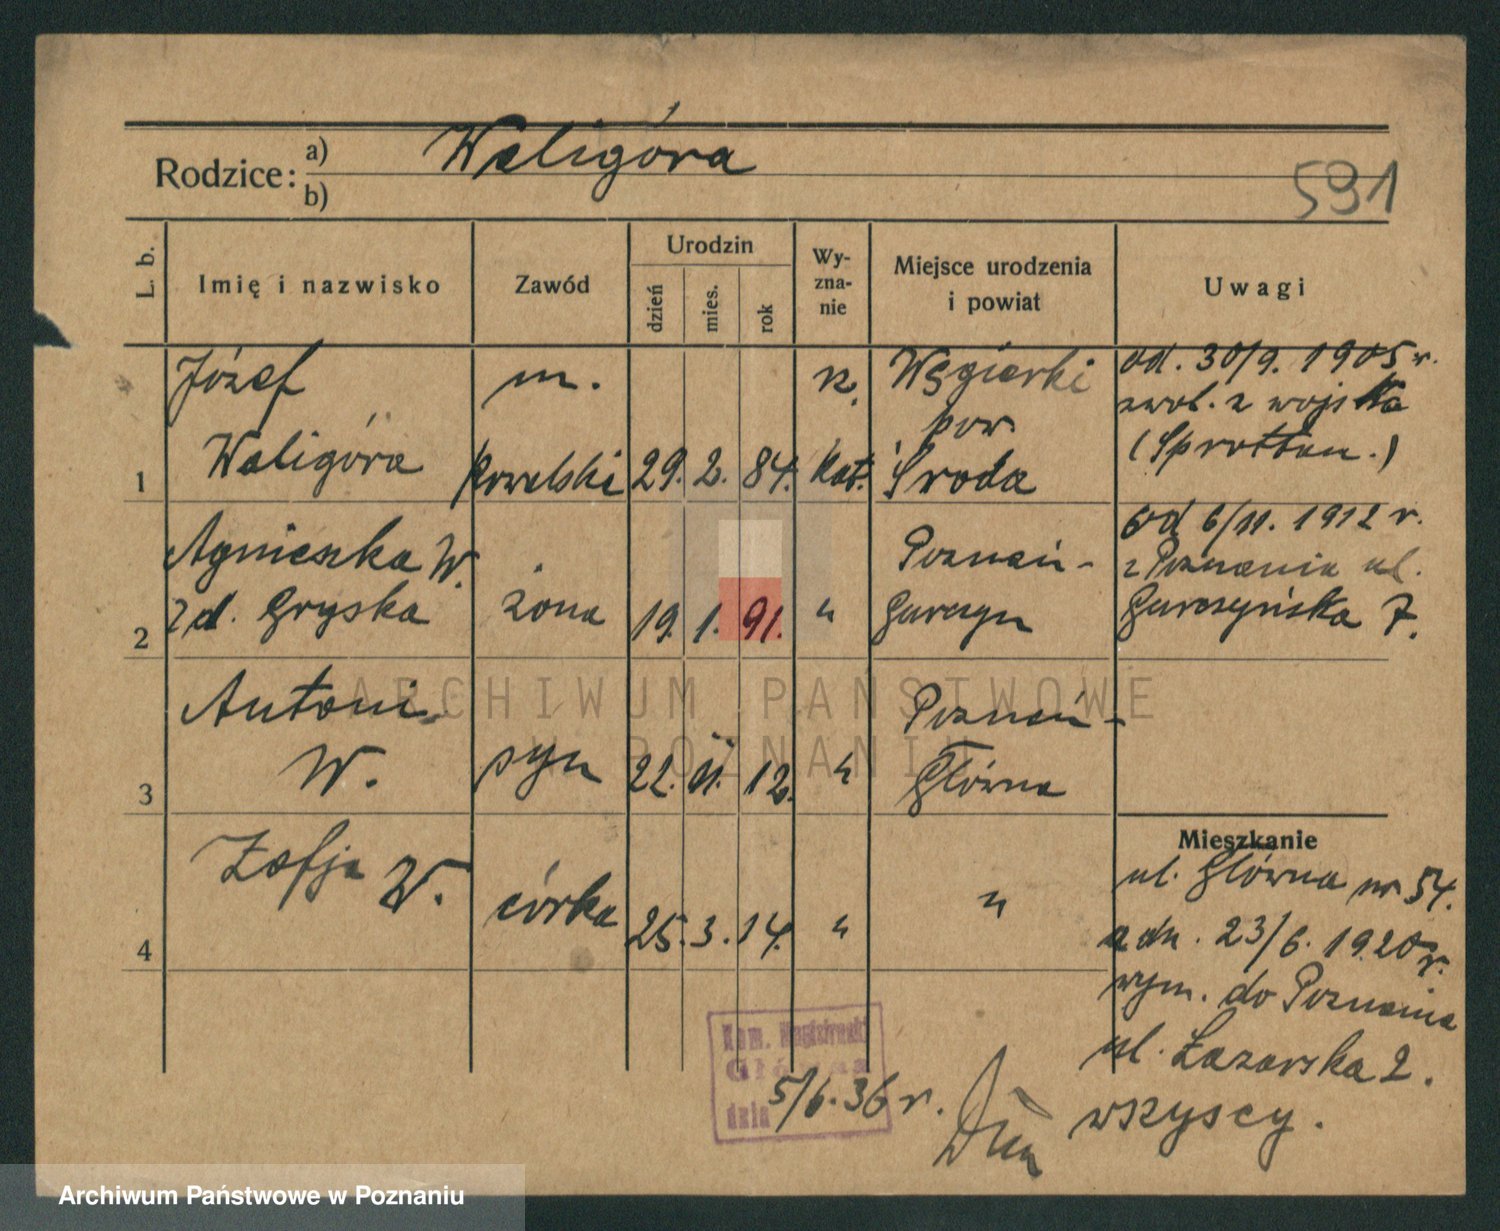 Rodzice: a) Waligóra
b)
591
L. b. Imię i nazwisko Zawód Urodzin Wy-zna-nie Miejsce urodzenia i powiat Uwagi
dzień mies. rok
1 Józef Waligóra m. Kowalski 29. 2. 84. rz. kat. Węgierki pow. Środa
od. 30/9. 1905 r.
zwol. z wojska
(Sprottau.)
2 Agnieszka W. zd. Gryska żona 19. 1. 91. " Poznań-Gurczyn
od 6/11. 1912 r.
z Poznania ul.
Gurczyńska 7.
3 Antoni W. syn 22. 11. 12. " Poznań-Główna
4 Zofja W. córka 25. 3. 14. " "
Mieszkanie
ul. Główna nr 54.
z dn. 23/6. 1920 r.
wym. do Poznania
ul. Łazarska 2.
wszyscy.
Kom. Magistracki
Główna
dnia 5/6. 36 r.
ARCHIWUM PAŃSTWOWE
W POZNANIU
Archiwum Państwowe w Poznaniu